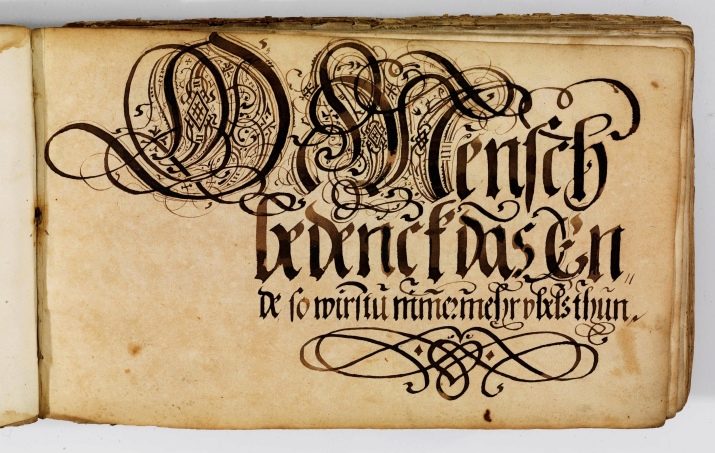 O Mensch
bedenck das En„
de so wirstu nimermehr vbels thun.